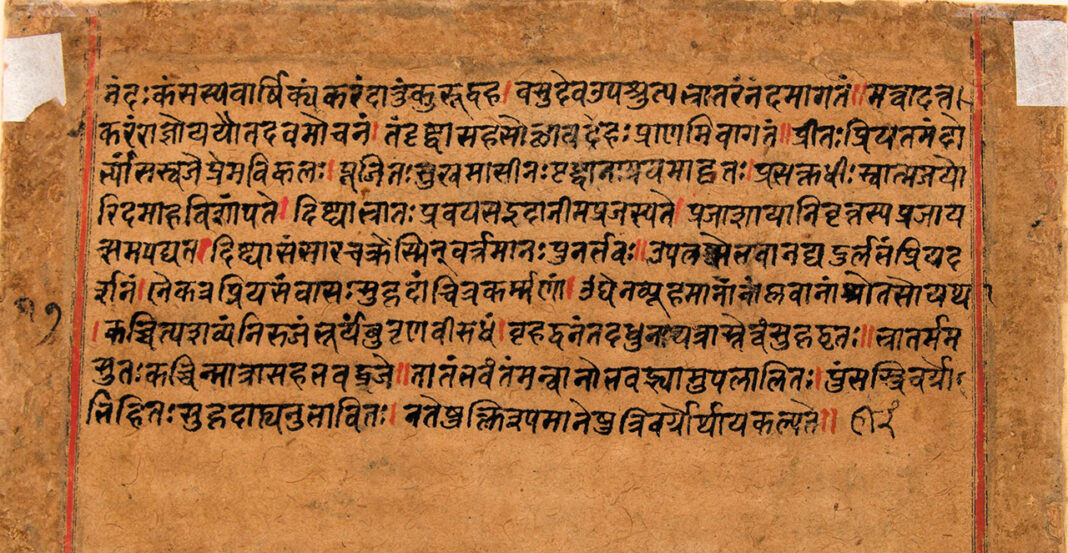 नंदःकंसस्यवार्षिक्यंकरंदातुंकुरूद्वह। वसुदेवउपश्रुत्यभ्रातरंनंदमागतं॥ मत्वादत्त।
करंराज्ञोययौतदवमोचनं। तंदृष्ट्वासहसोछायदेहःप्राणमिवागतं॥ प्रीतःप्रियतमंदो
र्भ्यांसस्वजेप्रेमविकलः। पूजितःसुखमासीनःपृष्ट्वानामयमादृतः। प्रसक्तधीःस्वात्मजयो
रिदमाहविशांपते। दिष्ट्याभ्रातःप्रवयसइदानीमप्रजस्यते। प्रजाशायानिवृत्तस्यप्रजाय
त्समपद्यत। दिष्ट्यासंसारचक्रेस्मिन्वर्त्तमानःपुनर्भवः॥ उपलब्धोभवानद्यदुर्लभंप्रियद
र्शनं। नैकत्रप्रियसंवासःसुहृदांचित्रकर्म्मणां। उघेनव्यूहमानानांप्लवानांस्रोतसोयथा
। कच्चित्पशव्यंनिरुजंभूर्यंबुतृणवीरुधं। बृहद्वनंतदधुनायत्रास्सेत्वंसुहृद्वृतः॥ भ्रातर्मम
सुतःकच्चिन्मात्रासहभवद्व्रजे॥ तातंभवंतंमन्वानोभवद्भ्यामुपलालितः। पुंसस्त्रिवर्गो
विहितःसुहृदोह्यनुभावितः। नतेषुक्लिश्यमानेषुत्रिवर्गोर्थायकल्पते॥